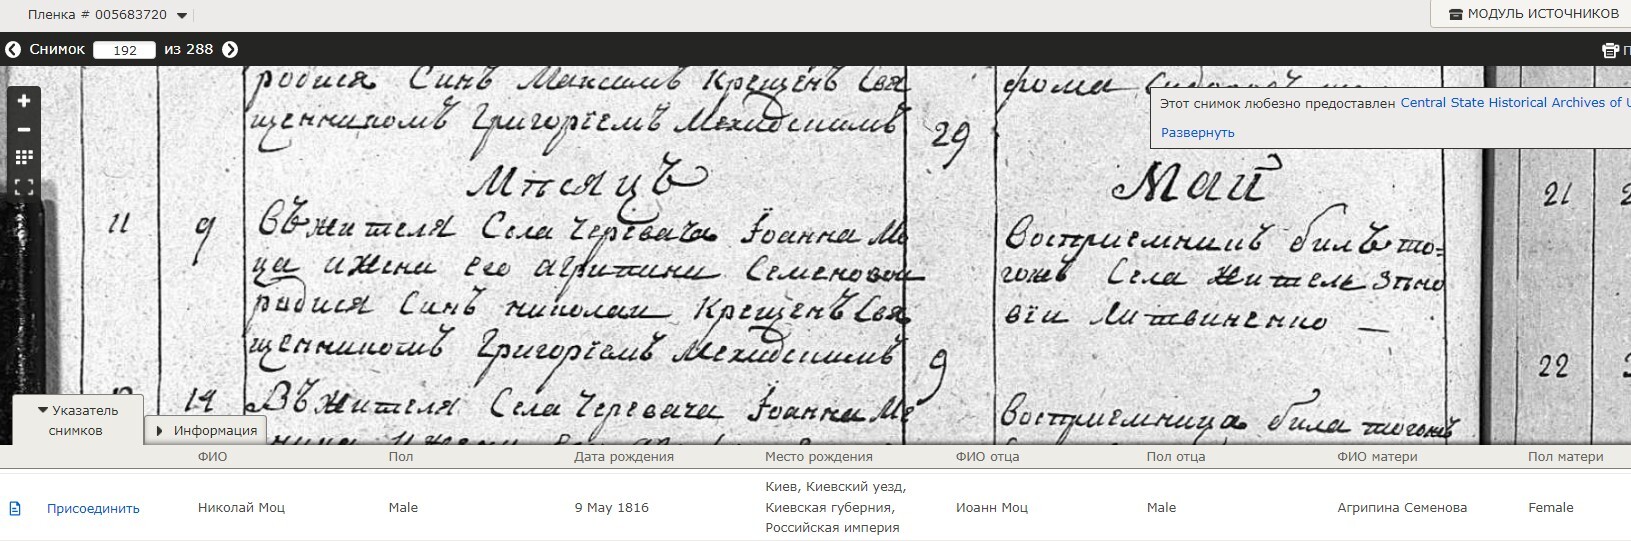 Пленка # 005683720
МОДУЛЬ ИСТОЧНИКОВ
Снимок 192 из 288
П
родился Синъ Максимъ Крещенъ Свя
щенникомъ Григорїемъ
29
Этот снимок любезно предоставлен Central State Historical Archives of U
Развернуть
Мѣсяцъ
Май
11 9 Въ жителя Села Черевача Їоанна Мо
ца и жени его агрипини Семеновой
родися Синъ николай Крещенъ Свя
щенникомъ Григорїемъ
9
Восприемникъ билъ то=
гожъ Села житель Зѣно
вїи Литвиненко —
21
22
14 Въ жителя Села Черевача Їоанна Ме
Восприемница била тогожъ
Указатель снимков
Информация
ФИО Пол Дата рождения Место рождения ФИО отца Пол отца ФИО матери Пол матери
Присоединить Николай Моц Male 9 May 1816 Киев, Киевский уезд, Киевская губерния, Российская империя Иоанн Моц Male Агрипина Семенова Female